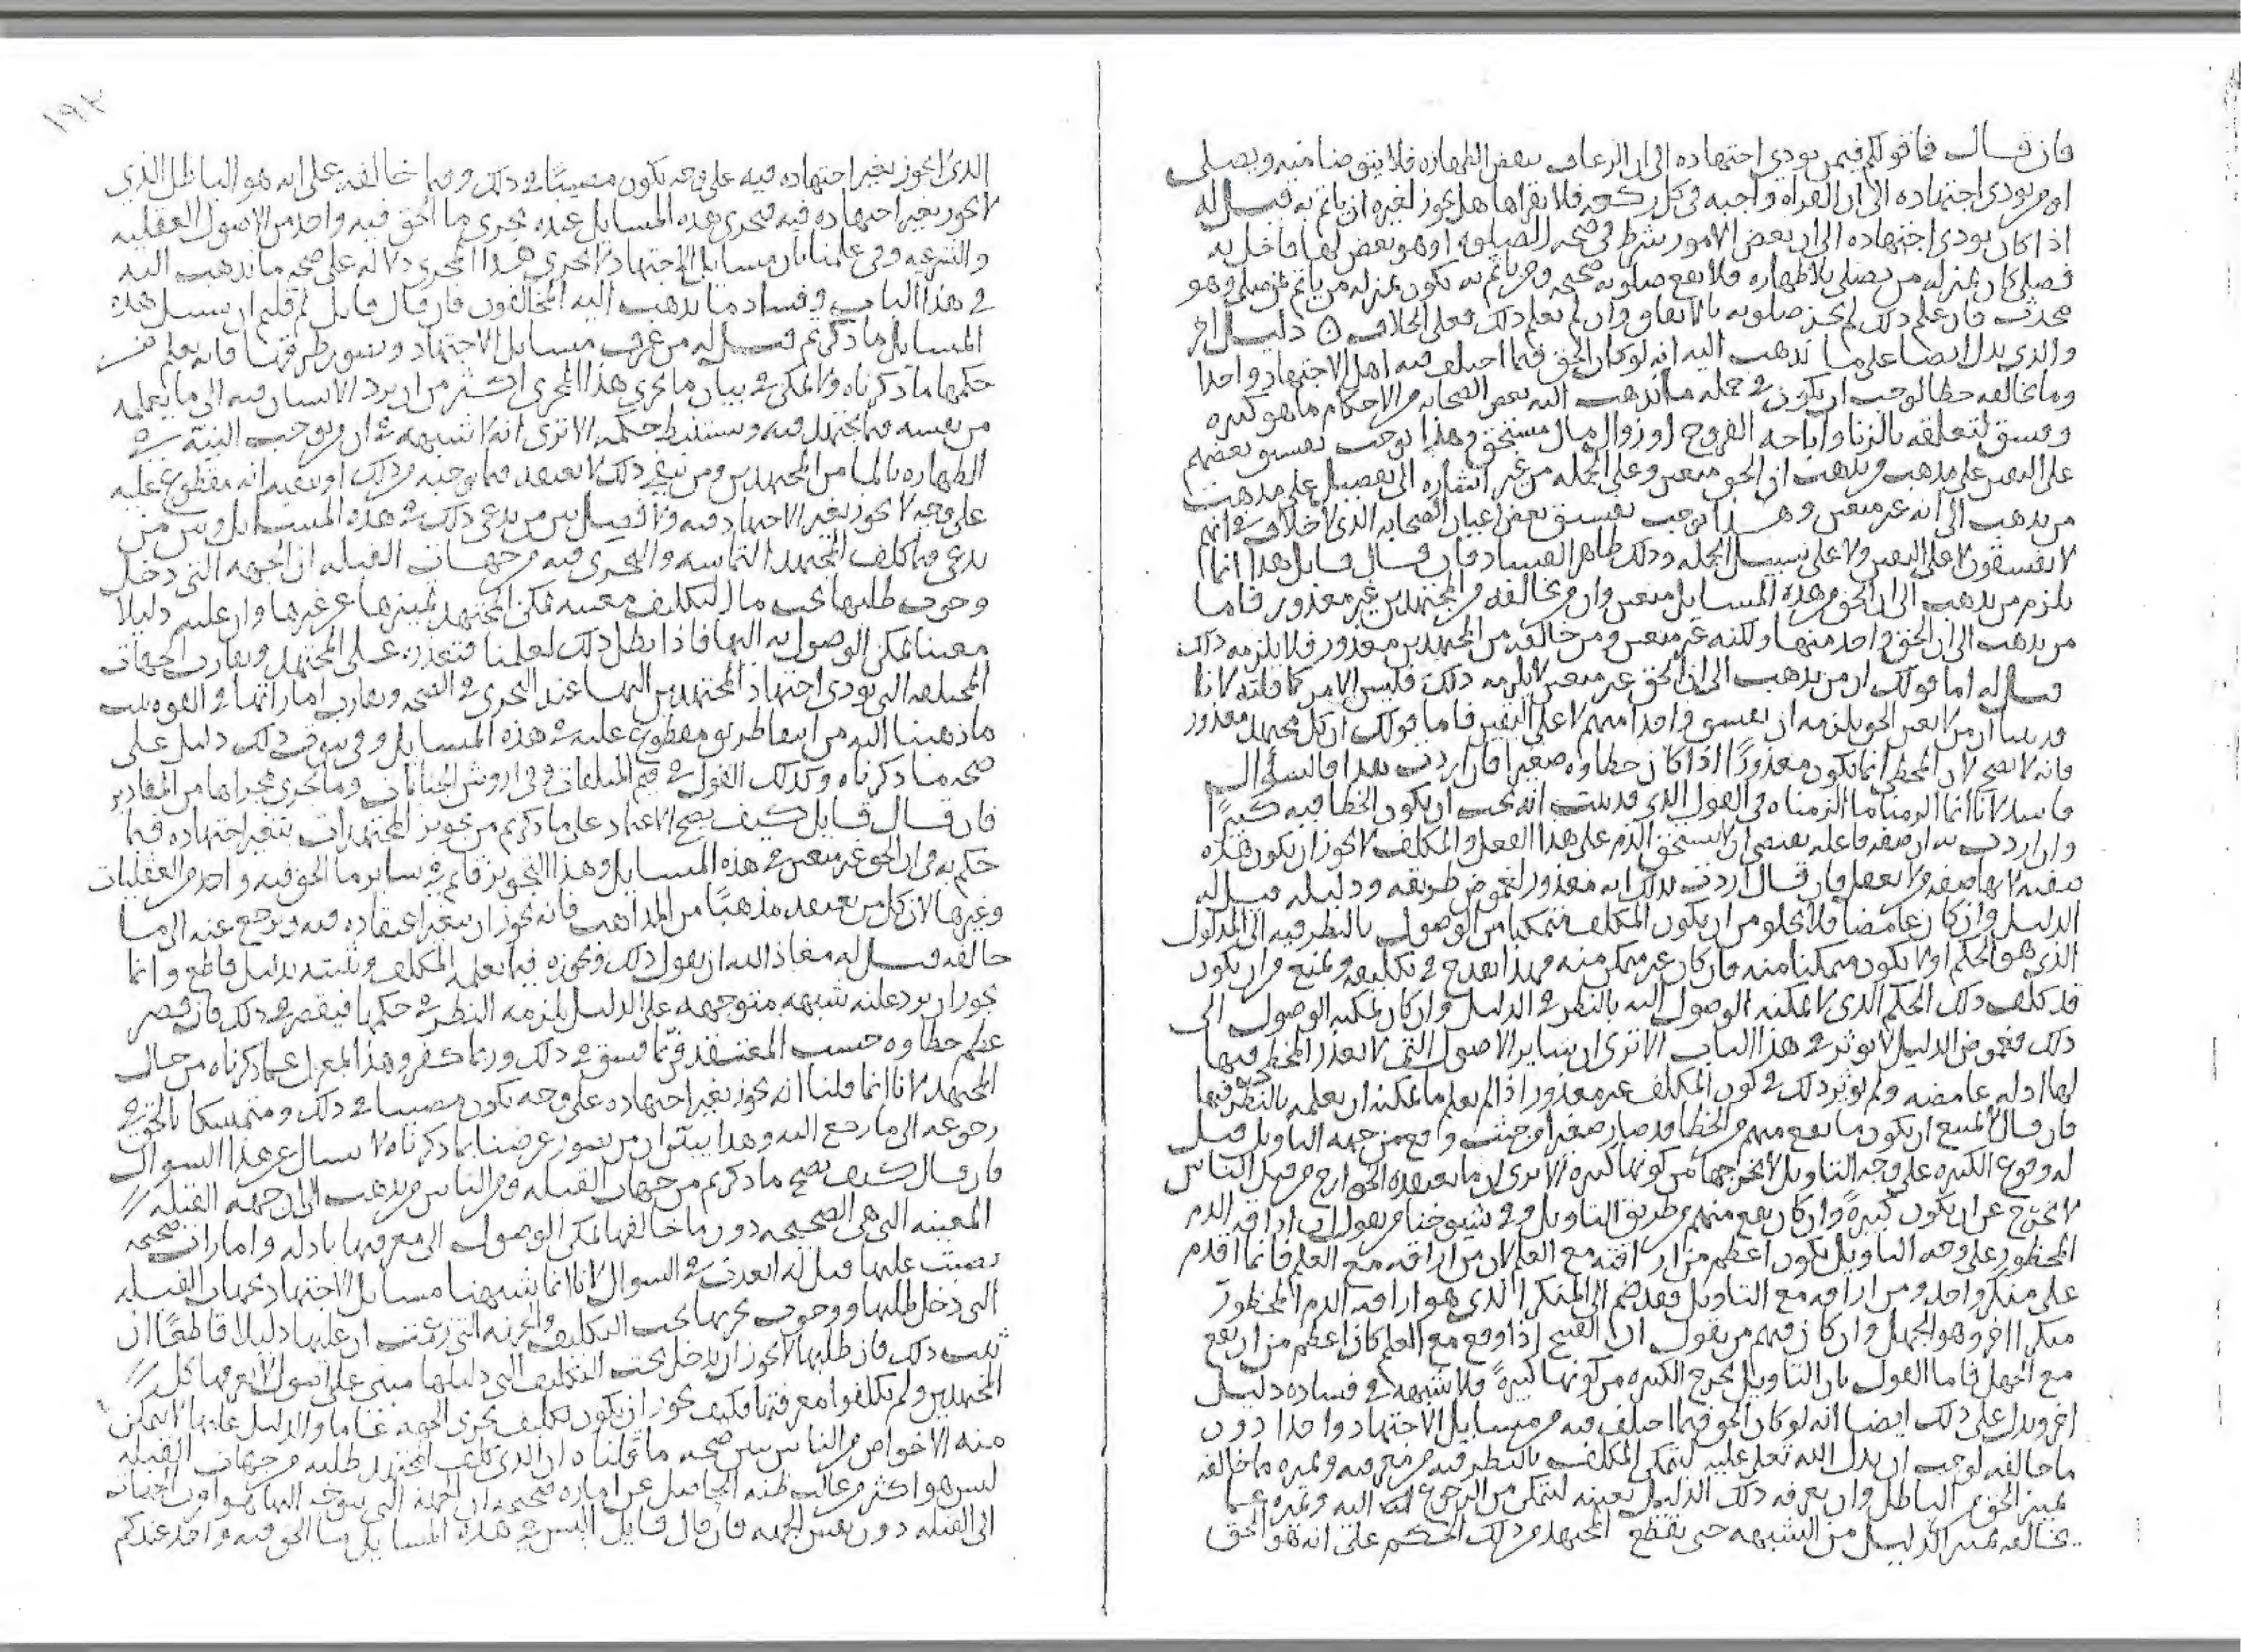 فان قال فما قولكم فيمن يودي اجتهاده الى ان الرعاف ينقض الطهاره فلا يتوضا منه ويصلي
او من يودي اجتهاده الى ان القراه واجبه في كل ركعه فلا يقراها هل يجوز لغيره ان ياتم به قيل له
اذا كان يودي اجتهاده الى ان بعض الامور شرط في صحه الصلوه او هو بعض لها فاخل به
فصلى كان بمنزله من يصلي بلا طهاره فلا يقع صلوته صحيحه ومن ياتم به يكون بمنزله من ياتم بمن صلى وهو
محدث فان علم ذلك لم يجز صلوته بالاتفاق وان لم يعلم ذلك فعلى الخلاف دليل اخر
والذي يدل ايضا على ما نذهب اليه انه لو كان الحق فيما اختلف فيه اهل الاجتهاد واحدا
وما يخالفه خطا لوجب ان يكون في جمله ما يذهب اليه بعض الصحابه من الاحكام ما هو كبيره
وفسق لتعلقه بالزنا واباحه الفروج او زوال مال مستحق وهذا يوجب تفسيق بعضهم
على التعيين على مذهب من يذهب ان الحق متعين وعلى الجمله من غير اشاره الى تفصيل على مذهب
من يذهب الى انه غير متعين وهذا يوجب تفسيق بعض اعيان الصحابه الذي لا خلاف في انهم
لا يفسقون لا على التعيين ولا على سبيل الجمله وذلك ظاهر الفساد فان قال قايل هذا انما
يلزم من يذهب الى ان الحق من هذه المسايل متعين وان من يخالفه من المجتهدين غير معذور فاما
من يذهب الى ان الحق واحد منها ولكنه غير متعين ومن خالفه من المجتهدين معذور فلا يلزمه ذلك
قيل له اما قولك ان من يذهب الى ان الحق غير متعين لا يلزمه ذلك فليس الامر كما قلته لانا
قد بينا ان من لا يعين الحق يلزمه ان يفسق واحدا منهم لا على التعيين فاما قولك ان كل مجتهد معذور
فانه لا يصح لان المخطي انما يكون معذورا اذا كان خطاوه صغيرا فان اردت هذا فالسؤال
فاسد لانا انما الزمنا ما الزمناه في القول الذي قد بينت انه يجب ان يكون الخطا فيه كبيرا
وان اردت به ان صفه فاعله يقتضي ان لا يستحق الذم على هذا الفعل والمكلف لا يجوز ان يكون هذه
صفته لانها صفه من لا يعقل فان قال اردت بذلك انه معذور لغموض طريقه ودليله قيل له
الدليل وان كان غامضا فلا يخلو من ان يكون المكلف متمكنا من الوصول بالنظر فيه الى المدلول
الذي هو الحكم او لا يكون متمكنا منه فان كان غير متمكن منه فهذا يقدح في تكليفه ويمنع من ان يكون
قد كلف ذلك الحكم الذي لا يمكنه الوصول اليه بالنظر في الدليل وان كان يمكنه الوصول الى
ذلك فغموض الدليل لا يوثر في هذا الباب الا ترى ان ساير الاصول التي لا يعذر المخطي فيها
لها ادله غامضه ولم يوثر ذلك في كون المكلف غير معذور اذا لم يعلم ما يمكنه ان يعلمه بالنظر فيها
فان قال لا يمتنع ان يكون ما يقع منهم من الخطا قد صار صغيرا من حيث واقع من جهه التاويل قيل
له وقوع الكبيره على وجه التاويل لا يخرجها من كونها كبيره الا ترى ان ما يعتقده الخوارج من قتل الناس
لا يخرج عن ان يكون كبيره وان كان يقع منهم من طريق التاويل وفي شيوخنا من يقول ان اراقه الدم
المحظور على وجه التاويل يكون اعظم من اراقته مع العلم لان من اراقه مع العلم فانما اقدم
على منكر واحد ومن اراقه مع التاويل فقد ضم الى المنكر الذي هو اراقه الدم المحظور
منكرا اخر وهو الجهل وان كان فيهم من يقول ان القبيح اذا وقع مع العلم كان اعظم من ان يقع
مع الجهل فاما القول بان التاويل يخرج الكبيره من كونها كبيره فلا شبهه في فساده دليل
اخر ويدل على ذلك ايضا انه لو كان الحق فيما اختلف فيه من مسايل الاجتهاد واحدا دون
ما خالفه لوجب ان يدل الله تعلى عليه ليتمكن المكلف بالنظر فيه من معرفته وتميزه ما خالفه
تميز الحق من الباطل وان يعرفه ذلك الدليل بعينه ليتمكن من الرجوع اليه وتميزه عما
يخالفه تميز الدليل من الشبهه حتى يقطع المجتهد من ذلك الحكم على انه هو الحق
١٩٢
الذي لا يجوز تغير اجتهاده فيه على وجه يكون مصيبا في ذلك وفيما خالفه على انه هو الباطل الذي
لا يجوز تغير اجتهاده فيه فتجري هذه المسايل عنده مجرى ما الحق فيه واحد من الاصول العقليه
والشرعيه وفي علمنا بان مسايل الاجتهاد لا تجري هذا المجرى دلاله على صحه ما نذهب اليه
في هذا الباب وفساد ما يذهب اليه المخالفون فان قال قايل لم قلتم ان سبيل هذه
المسايل ما ذكرتم قيل له من عرف مسايل الاجتهاد وتصور طرقها فانه يعلم من
حكمها ما ذكرناه ولا يمكن في بيان ما يجري هذا المجرى اكثر من ان يرد الانسان فيه الى ما يعلمه
من نفسه فيما يجتهد فيه ويستنبط حكمه الا ترى انه لا شبهه في ان من يوجب النيه في
الطهاره بالما من المجتهدين ومن ينفي ذلك لا يعتقد فيما يوجبه من ذلك او ينفيه انه مقطوع عليه
على وجه لا يجوز تغير الاجتهاد فيه ولا فصل بين من يدعي ذلك في هذه المسايل وبين من
يدعي فيما كلف المجتهد التماسه والتحري فيه من جهات القبله ان الجهه التي دخل
وجوب طلبها تحت التكليف معينه يمكن المجتهد تميزها عن غيرها وان عليها دليلا
معينا يمكن الوصول به اليها فاذا بطل ذلك لعلمنا بتعذره على المجتهد وتقارب الجهات
المختلفه التي يودي اجتهاد المجتهدين اليها عند التحري في الصحه وتقارب اماراتها في القوه ثبت
ما ذهبنا اليه من انتفا طريق مقطوع عليه في هذه المسايل وفي ثبوت ذلك دليل على
صحه ما ذكرناه وكذلك القول في قيم المتلفات وفي اروش الجنايات وما يجري مجراها من المقادير
فان قال قايل كيف يصح الاعتماد على ما ذكرتم من تجويز المجتهد ان يتغير اجتهاده فيما
حكم به في ان الحق غير متعين في هذه المسايل وهذا التجويز قايم في ساير ما الحق فيه واحد من العقليات
وغيرها لان كل من يعتقد مذهبا من المذاهب فانه يجوز ان يتغير اعتقاده فيه ويرجع عنه الى ما
خالفه قيل له معاذ الله ان يقول ذلك ونجوزه فيما يعلمه المكلف ويثبته بدليل قاطع وانما
يجوز ان يرد عليه شبهه متوجهه على الدليل يلزمه النظر في حكمها فيقصر في ذلك فان قصر
عظم خطاوه حسب المعتقد فربما فسق في ذلك وربما كفر وهذا بمعزل عما ذكرناه من حال
المجتهد لانا انما قلنا انه يجوز تغير اجتهاده على وجه يكون مصيبا في ذلك ومتمسكا بالحق في
رجوعه الى ما رجع اليه وهذا يبين ان من تصور غرضنا بما ذكرناه لا يسال عن هذا السوال
فان قال كيف يصح ما ذكرتم من جهات القبله ومن الناس من يذهب الى ان جهه القبله
المعينه التي هي الصحيحه دون ما خالفها يمكن الوصول الى معرفتها بادله وامارات صحيحه
نصبت عليها قيل له ابعدت في السوال لانا انما شبهنا مسايل الاجتهاد بجهات القبله
التي دخل طلبها ووجوب تحريها تحت التكليف والجهه التي زعمت ان عليها دليلا قاطعا ان
ثبت ذلك فان طلبها لا يجوز ان يدخل تحت التكليف التي دليلها مبني على اصول لا يعرفها كل
المجتهدين ولم يكلفوا معرفتها فكيف يجوز ان يكون تكليف تحري الجهه عاما والدليل عليها لا يتمكن
منه الا خواص من الناس يبين صحه ما قلناه ان الذي كلف المجتهد طلبه من جهات القبله
ليس هو اكثر من غالب ظنه الحاصل عن اماره صحيحه ان الجهه التي يتوجه اليها هو اقرب الجهات
الى القبله دون تعيين الجهه فان قال قايل اليس في هذه المسايل ما الحق فيه واحد عندكم